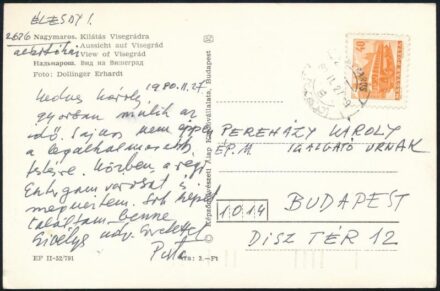 ÉLESDY I.
2626
Nagymaros. Kilátás Visegrádra
Aussicht auf Visegrád
View of Visegrád
Надьмарош. Вид на Вишеград
Foto: Dollinger Erhardt
1980.11.27
Kedves Károly
gyorsan múlik az
idő. Sajnos nem éppen
a legalkalmasabb
testére. Közben a régi
megnéztem. Sok képet
találtam benne
Pista
EP II-52/791
Képzőművészeti Alap Kiadóvállalata, Budapest
Ára: 2.-Ft
40
MAGYAR POSTA
PEREHÁZY KÁROLY
ÉP.M. IGAZGATÓ ÚRNAK
1014
BUDAPEST
DISZ TÉR 12